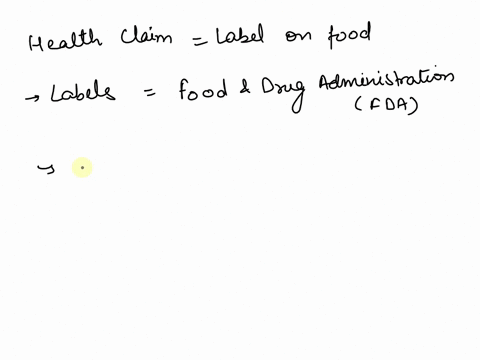 Health Claim = Label on food
→ Labels = food & Drug Administration
(FDA)
→